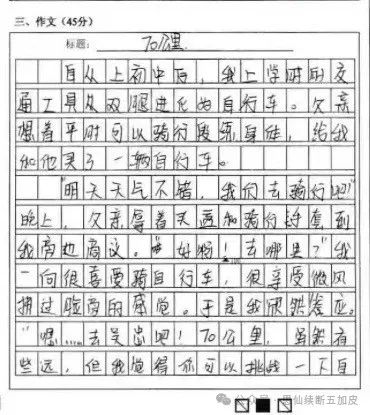 三、作文（45分）
标题：70公里
自从上初中后，我上学时的交
通工具从双腿进化为自行车。父亲
想着平时可以骑行锻练身体，给我
和他买了一辆自行车。
"明天天气不错，我们去骑行吧"
晚上，父亲拿着头盔和骑行
我旁边商议。"好啊！去哪里？"我
一向很喜爱骑自行车，很享受微风
拂过脸旁的感觉。于是我欣然答应。
"嗯……去吴忠吧！70公里，虽然有
些远，但我觉得你可以挑战一下自
续断五加皮